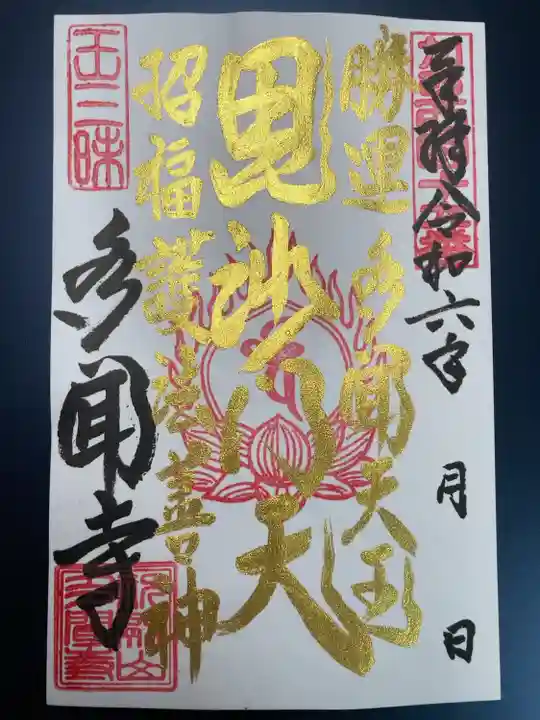 奉拝 令和六年 月 日
勝運 多聞天王
毘沙門天
招福 護法善神
多聞寺
王三昧